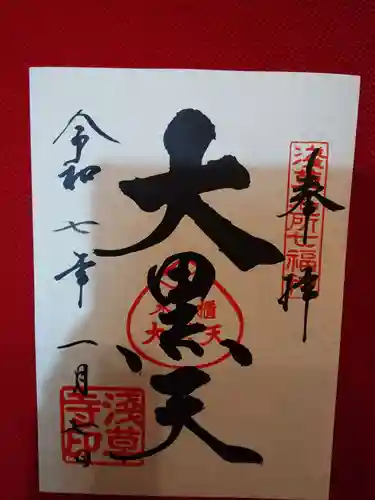 奉拝
浅草名所七福神
大黒天
令和七年一月七日
浅草寺印